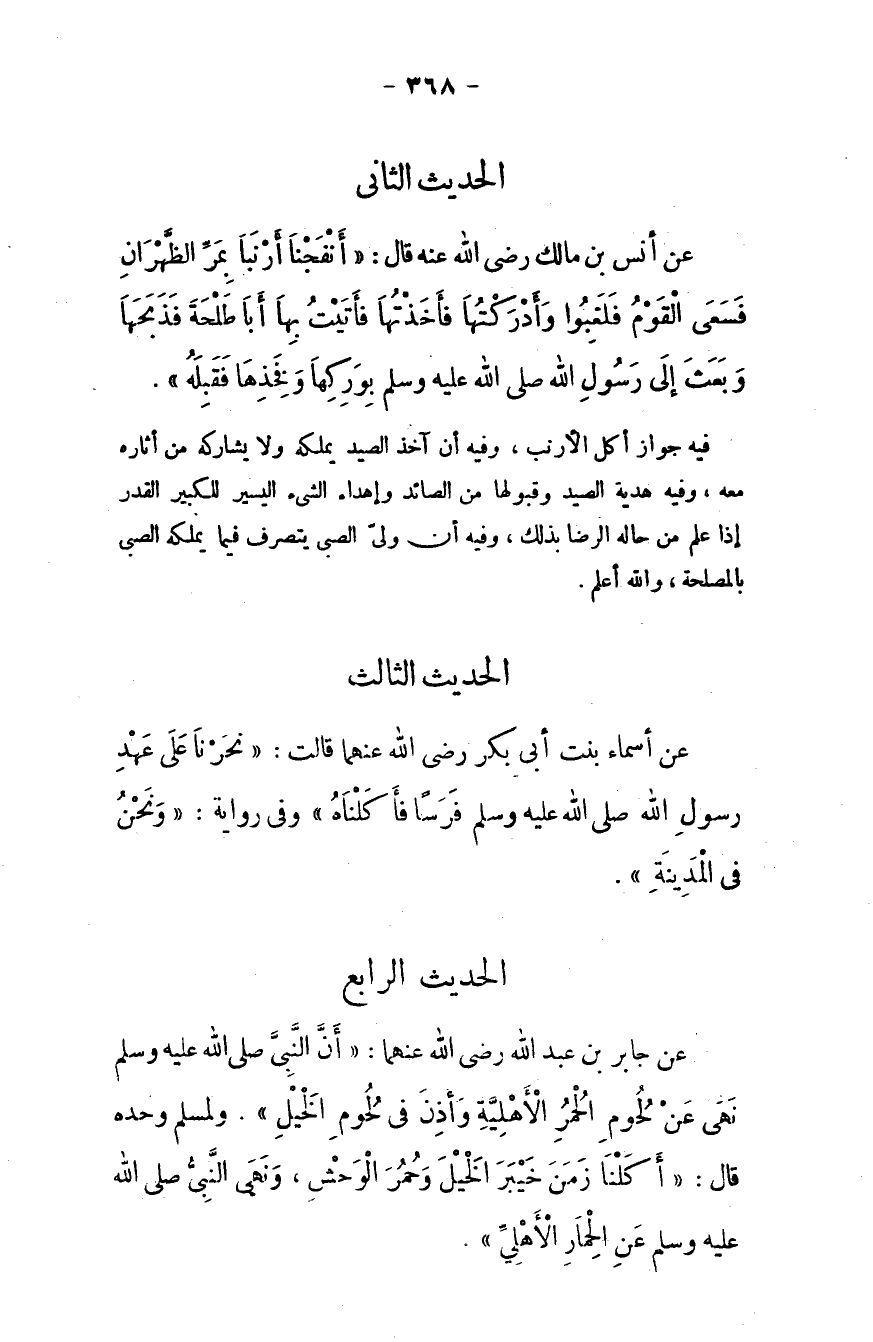 - ٣٦٨ -
الحديث الثانى
عن أنس بن مالك رضى الله عنه قال : « أَنْفَجْنَا أَرْنَبًا بِمَرِّ الظَّهْرَانِ
فَسَعَى الْقَوْمُ فَلَغِبُوا وَأَدْرَكْتُهَا فَأَخَذْتُهَا فَأَتَيْتُ بِهَا أَبَا طَلْحَةَ فَذَبَحَهَا
وَبَعَثَ إِلَى رَسُولِ الله صلى الله عليه وسلم بِوَرِكِهَا وَفَخِذِهَا فَقَبِلَهُ » .
فيه جواز أكل الأرنب ، وفيه أن آخذ الصيد يملكه ولا يشاركه من أثاره
معه ، وفيه هدية الصيد وقبولها من الصائد وإهداء الشىء اليسير للكبير القدر
إذا علم من حاله الرضا بذلك ، وفيه أن ولىّ الصبى يتصرف فيما يملكه الصبى
بالمصلحة ، والله أعلم .
الحديث الثالث
عن أسماء بنت أبى بكر رضى الله عنهما قالت : « نَحَرْنَا عَلَى عَهْدِ
رسولِ الله صلى الله عليه وسلم فَرَسًا فَأَكَلْنَاهُ » وفى رواية : « وَنَحْنُ
فى الْمَدِينَةِ » .
الحديث الرابع
عن جابر بن عبد الله رضى الله عنهما : « أَنَّ النَّبِىَّ صلى الله عليه وسلم
نَهَى عَنْ لُحُومِ الْحُمُرِ الْأَهْلِيَّةِ وَأَذِنَ فى لُحُومِ الْخَيْلِ » . ولمسلم وحده
قال : « أَكَلْنَا زَمَنَ خَيْبَرَ الْخَيْلَ وَحُمُرَ الْوَحْشِ ، وَنَهَى النَّبِىُّ صلى الله
عليه وسلم عَنِ الْحِمَارِ الْأَهْلِيِّ » .